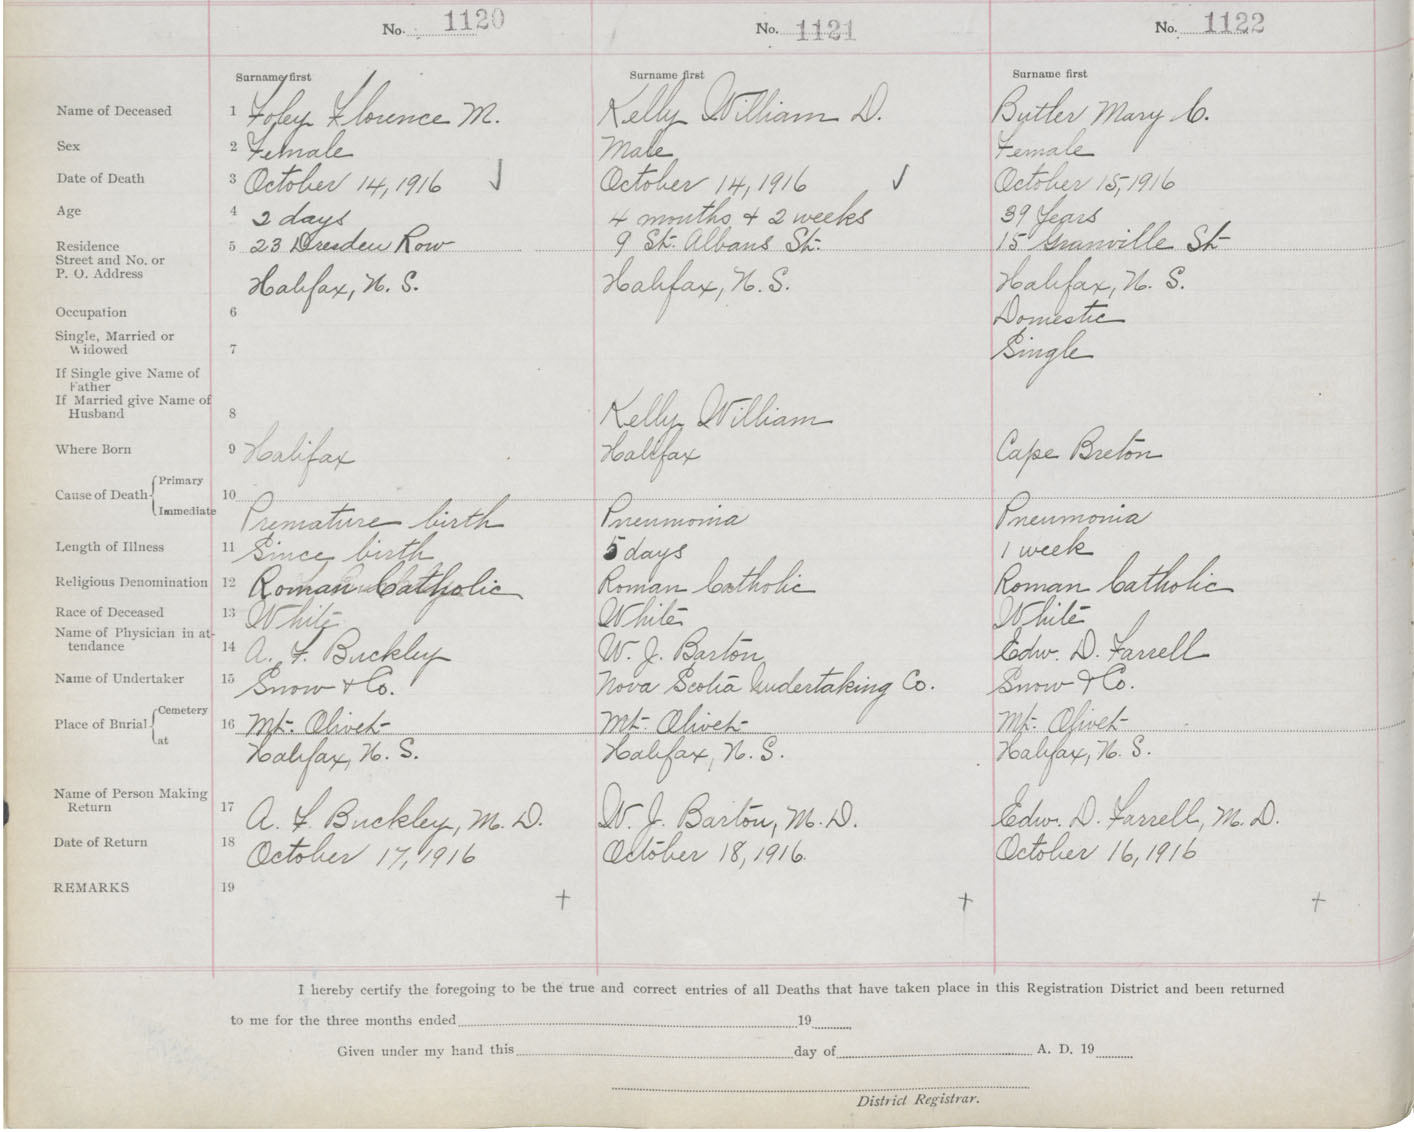 No. 1120 No. 1121 No. 1122
Surname first Surname first Surname first
Name of Deceased 1 Foley Florence M. Kelly William D. Butler Mary C.
Sex 2 Female Male Female
Date of Death 3 October 14, 1916 October 14, 1916 October 15, 1916
Age 4 2 days 4 months & 2 weeks 39 Years
Residence 5 23 Dresden Row 9 St. Albans St. 15 Granville St
Street and No. or
P. O. Address Halifax, N. S. Halifax, N. S. Halifax, N. S.
Occupation 6 Domestic
Single, Married or
Widowed 7 Single
If Single give Name of
Father
If Married give Name of
Husband 8 Kelly William
Where Born 9 Halifax Halifax Cape Breton
Primary
Cause of Death 10
Immediate Premature birth Pneumonia Pneumonia
Length of Illness 11 Since birth 5 days 1 week
Religious Denomination 12 Roman Catholic Roman Catholic Roman Catholic
Race of Deceased 13 White White White
Name of Physician in at-
tendance 14 A. F. Buckley W. J. Barton Edw. D. Farrell
Name of Undertaker 15 Snow & Co. Nova Scotia Undertaking Co. Snow & Co.
Cemetery
Place of Burial 16 Mt. Olivet Mt. Olivet Mt. Olivet
at Halifax, N. S. Halifax, N. S. Halifax, N. S.
Name of Person Making
Return 17 A. F. Buckley, M. D. W. J. Barton, M. D. Edw. D. Farrell, M. D.
Date of Return 18 October 17, 1916 October 18, 1916. October 16, 1916
REMARKS 19
I hereby certify the foregoing to be the true and correct entries of all Deaths that have taken place in this Registration District and been returned
to me for the three months ended 19
Given under my hand this day of A. D. 19
District Registrar.